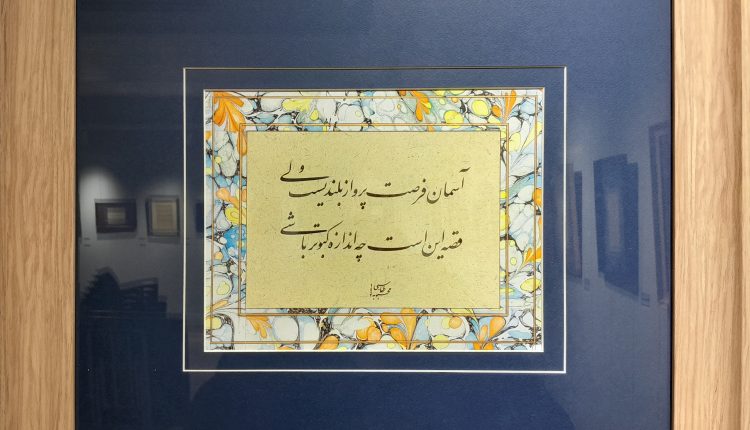 آسمان فرصت پرواز بلندیست ولی
قصه این است چه اندازه کبوتر باشی